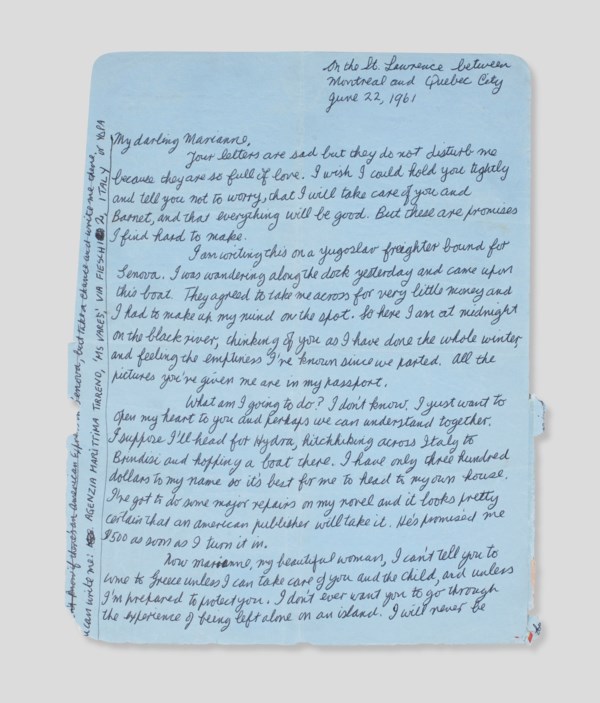 On the St. Lawrence between
Montreal and Quebec City
June 22, 1961
My darling Marianne,
Your letters are sad but they do not disturb me
because they are so full of love. I wish I could hold you tightly
and tell you not to worry, that I will take care of you and
Barnet, and that everything will be good. But these are promises
I find hard to make.
I am writing this on a Yugoslav freighter bound for
Genova. I was wandering along the dock yesterday and came upon
this boat. They agreed to take me across for very little money and
I had to make up my mind on the spot. So here I am at midnight
on the black river, thinking of you as I have done the whole winter
and feeling the emptiness I've known since we parted. All the
pictures you've given me are in my passport.
What am I going to do? I don't know. I just want to
open my heart to you and perhaps we can understand together.
I suppose I'll head for Hydra, hitchhiking across Italy to
Brindisi and hopping a boat there. I have only three hundred
dollars to my name so it's best for me to head to my own house.
I've got to do some major repairs on my novel and it looks pretty
certain that an american publisher will take it. He's promised me
$500 as soon as I turn it in.
Now Marianne, my beautiful woman, I can't tell you to
come to Greece unless I can take care of you and the child, and unless
I'm prepared to protect you. I don't ever want you to go through
the experience of being left alone on an island. I will never be
know if there's an American Express in Genova, but take a chance and write me there,
can write me: AGENZIA MARITTIMA TIRRENO, 'MS VARES', VIA FIESCHI 2, ITALY or